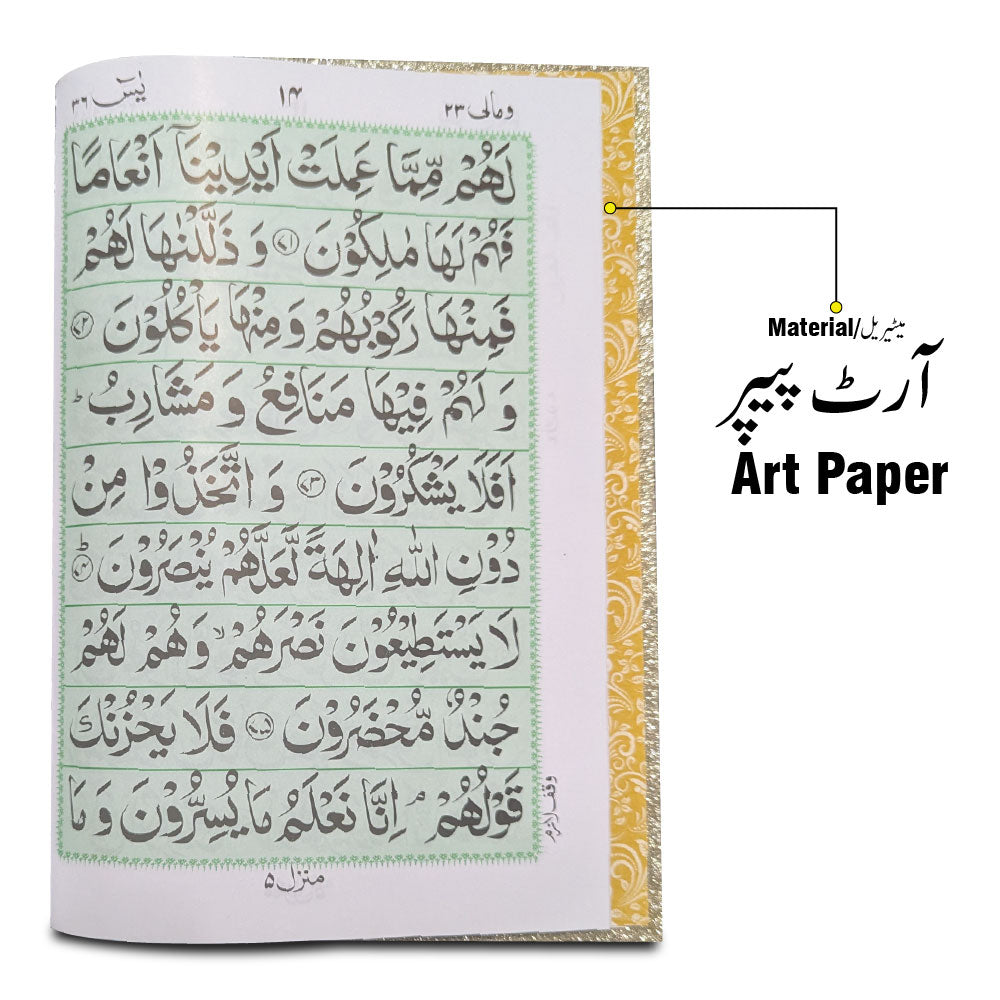 ومالی ۲۳ ۱۴ یٰسٓ ۳۶
لَهُمْ مِّمَّا عَمِلَتْ اَيْدِيْنَاۤ اَنْعَامًا
فَهُمْ لَهَا مٰلِكُوْنَ ﴿۷۱﴾ وَ ذَلَّلْنٰهَا لَهُمْ
فَمِنْهَا رَكُوْبُهُمْ وَ مِنْهَا يَاْكُلُوْنَ ﴿۷۲﴾
وَ لَهُمْ فِيْهَا مَنَافِعُ وَ مَشَارِبُ ؕ
اَفَلَا يَشْكُرُوْنَ ﴿۷۳﴾ وَ اتَّخَذُوْا مِنْ
دُوْنِ اللّٰهِ اٰلِهَةً لَّعَلَّهُمْ يُنْصَرُوْنَ ؕ﴿۷۴﴾
لَا يَسْتَطِيْعُوْنَ نَصْرَهُمْ ۙ وَ هُمْ لَهُمْ
جُنْدٌ مُّحْضَرُوْنَ ﴿۷۵﴾ فَلَا يَحْزُنْكَ
قَوْلُهُمْ ۘ اِنَّا نَعْلَمُ مَا يُسِرُّوْنَ وَ مَا
وقف لازم
منزل ۵
Material/میٹیریل
آرٹ پیپر
Art Paper